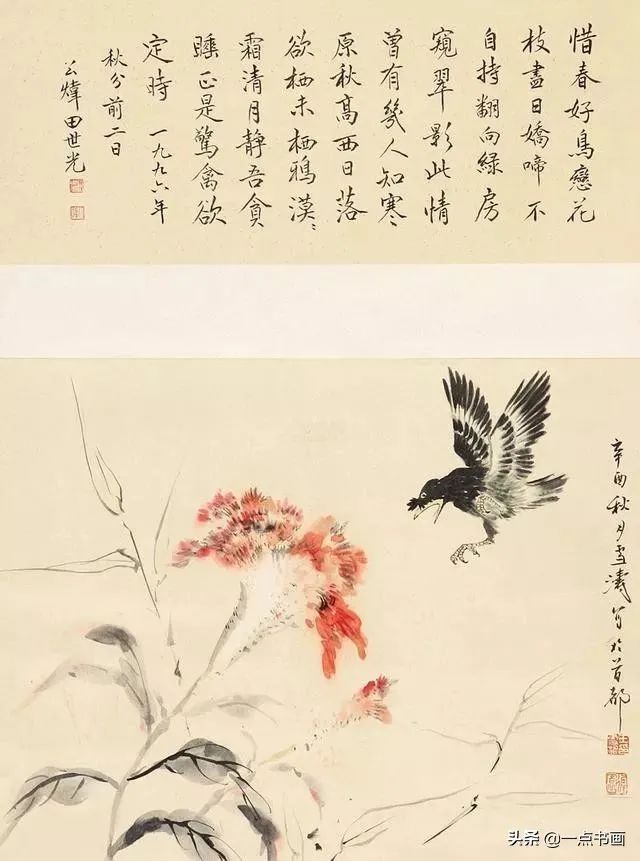 惜春好鳥戀花
枝盡日嬌啼不
自持翻向綠房
窺翠影此情
曾有幾人知寒
原秋高西日落
欲栖未栖鴉漠〻
霜清月靜吾貪
睡正是驚禽欲
定時 一九九六年
秋分前二日
公煒田世光
辛酉秋月雪濤写於首都
头条 @一点书画